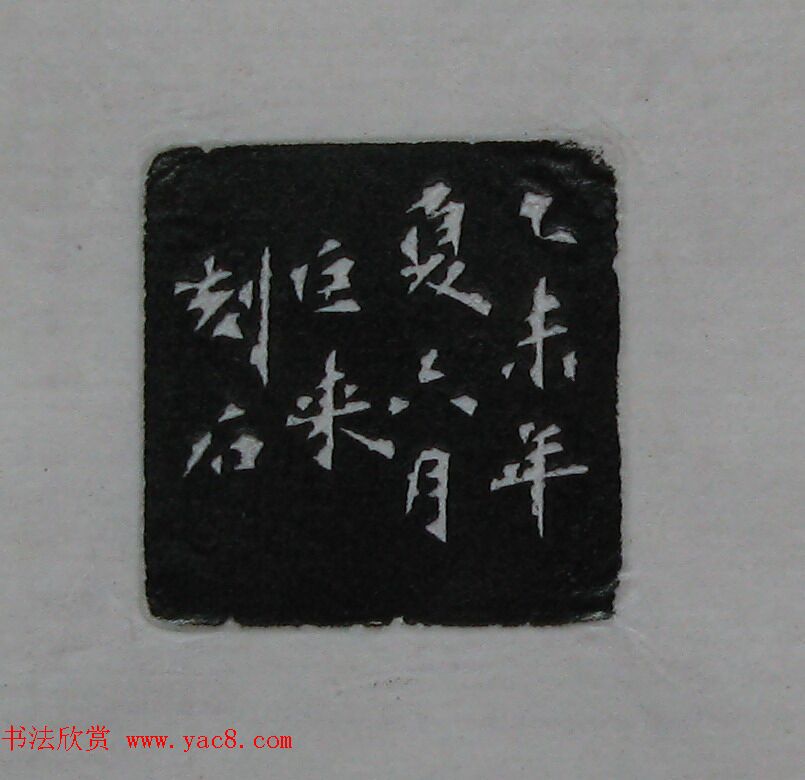 乙未年
夏六月
庄来
刻石
书法欣赏 www.yac8.com